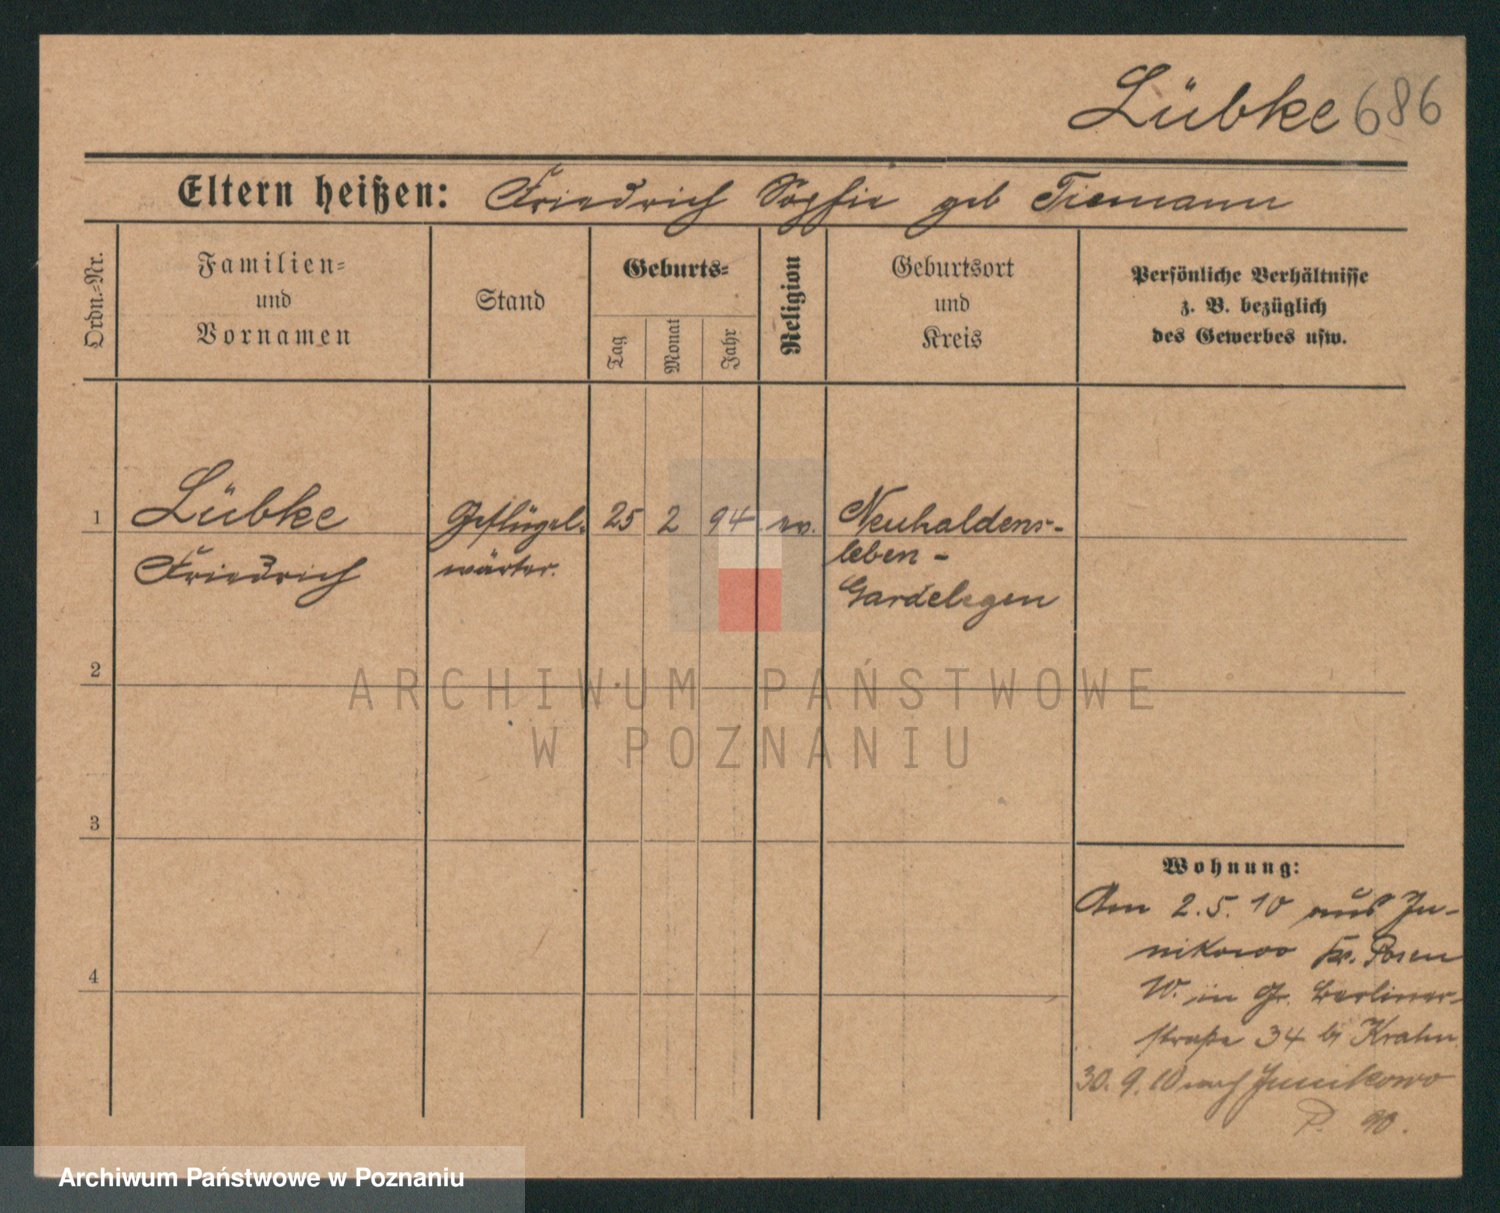 Lübke 686
Eltern heißen: Friedrich Sophie geb Tiemann
Ordn.-Nr.
Familien-
und
Vornamen
Stand
Geburts-
Tag
Monat
Jahr
Religion
Geburtsort
und
Kreis
Persönliche Verhältnisse
z. B. bezüglich
des Gewerbes usw.
1 Lübke Geflügel- 25 2 94 ev. Neuhaldens-
Friedrich wärter. leben -
Gardelegen
2
3
4
Wohnung:
Am 2.5.10 aus Ju-
nikowo Kr. Posen
W. in Gr. Berliner-
straße 34 bei Krahn
30.9.10 nach Junikowo
P.
ARCHIWUM PAŃSTWOWE
W POZNANIU
Archiwum Państwowe w Poznaniu